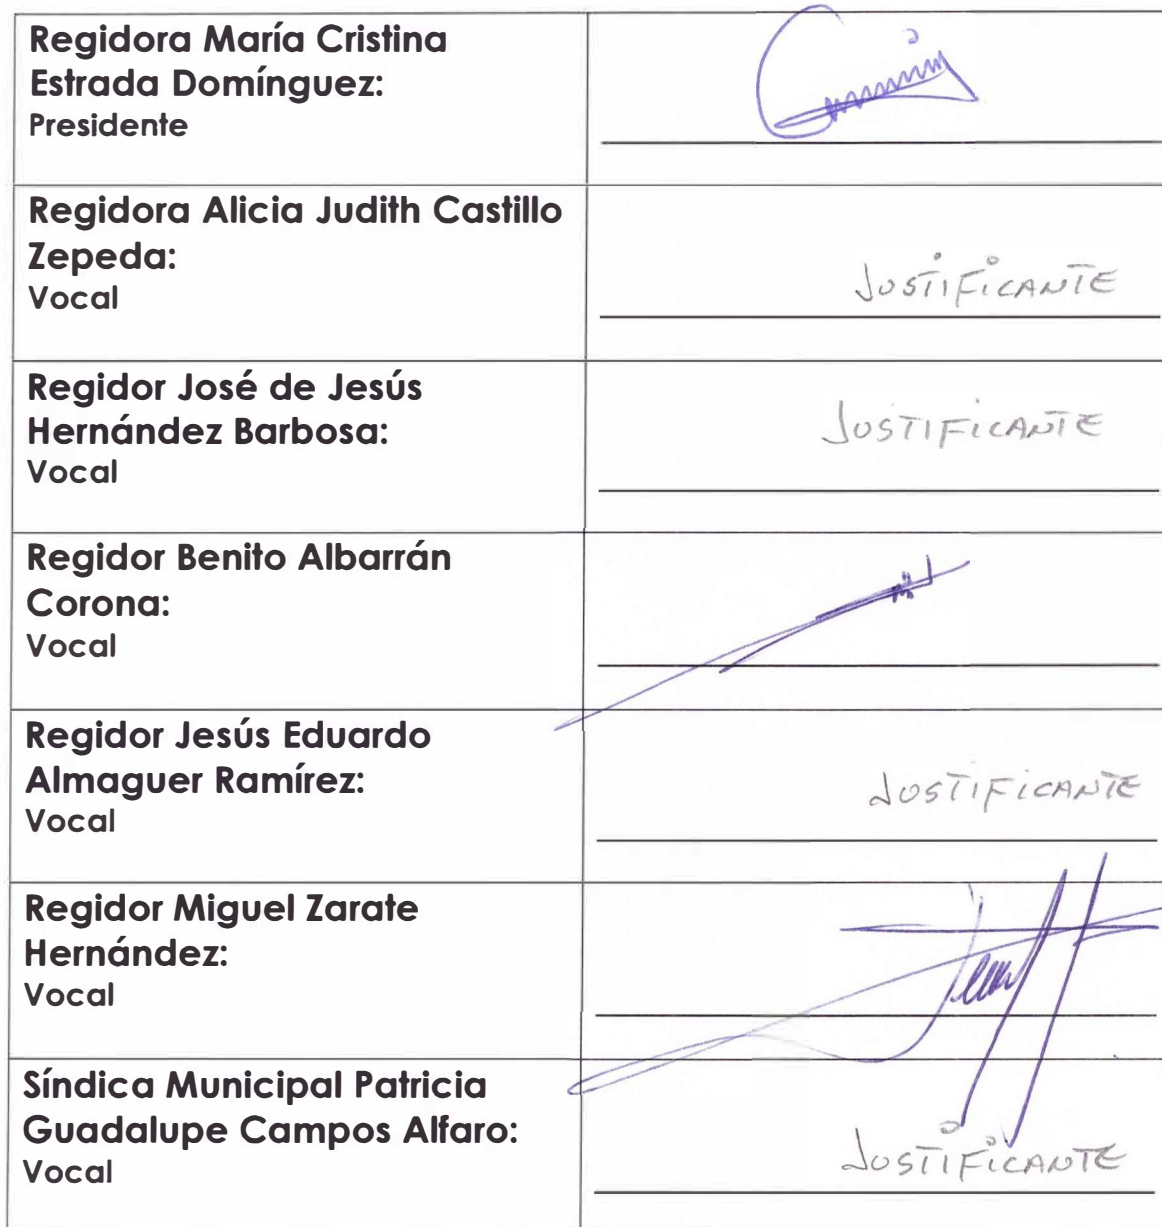 Regidora María Cristina
Estrada Domínguez:
Presidente
Regidora Alicia Judith Castillo
Zepeda:
Vocal
JUSTIFICANTE
Regidor José de Jesús
Hernández Barbosa:
Vocal
JUSTIFICANTE
Regidor Benito Albarrán
Corona:
Vocal
Regidor Jesús Eduardo
Almaguer Ramírez:
Vocal
JUSTIFICANTE
Regidor Miguel Zarate
Hernández:
Vocal
Síndica Municipal Patricia
Guadalupe Campos Alfaro:
Vocal
JUSTIFICANTE